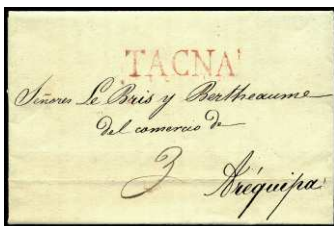 TACNA
Señores Le Bris y Bertheaume
del comercio de
3
Aréquipa